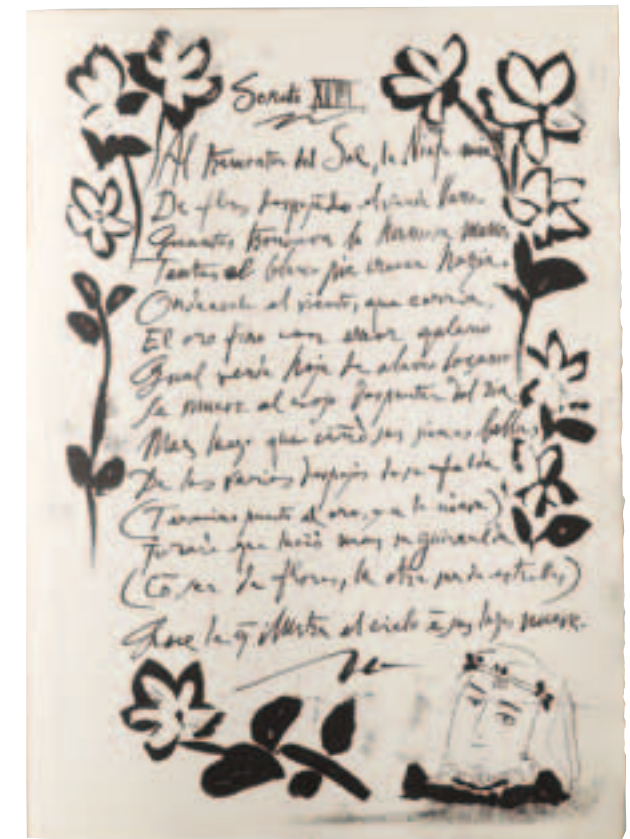 Al tramontar del Sol, la Ninfa mia
De flores despojando el verde llano
Quantas troncava la hermosa mano
Tantas el blanco pie crecer hazia.
Ondeavale el viento, que corria
El oro fino con error galano
Qual verde hoja de alamo loçano
Se mueve al rojo despuntar del dia
Mas luego que ciñó sus sienes bellas
De los varios despojos de su falda
(Termino puesto al oro, y a la nieve)
Juraré que lució mas su guirnalda
(Cō ser de flores, la otra ser de estrellas)
Que la q ilustra el cielo ē luzes nueve.